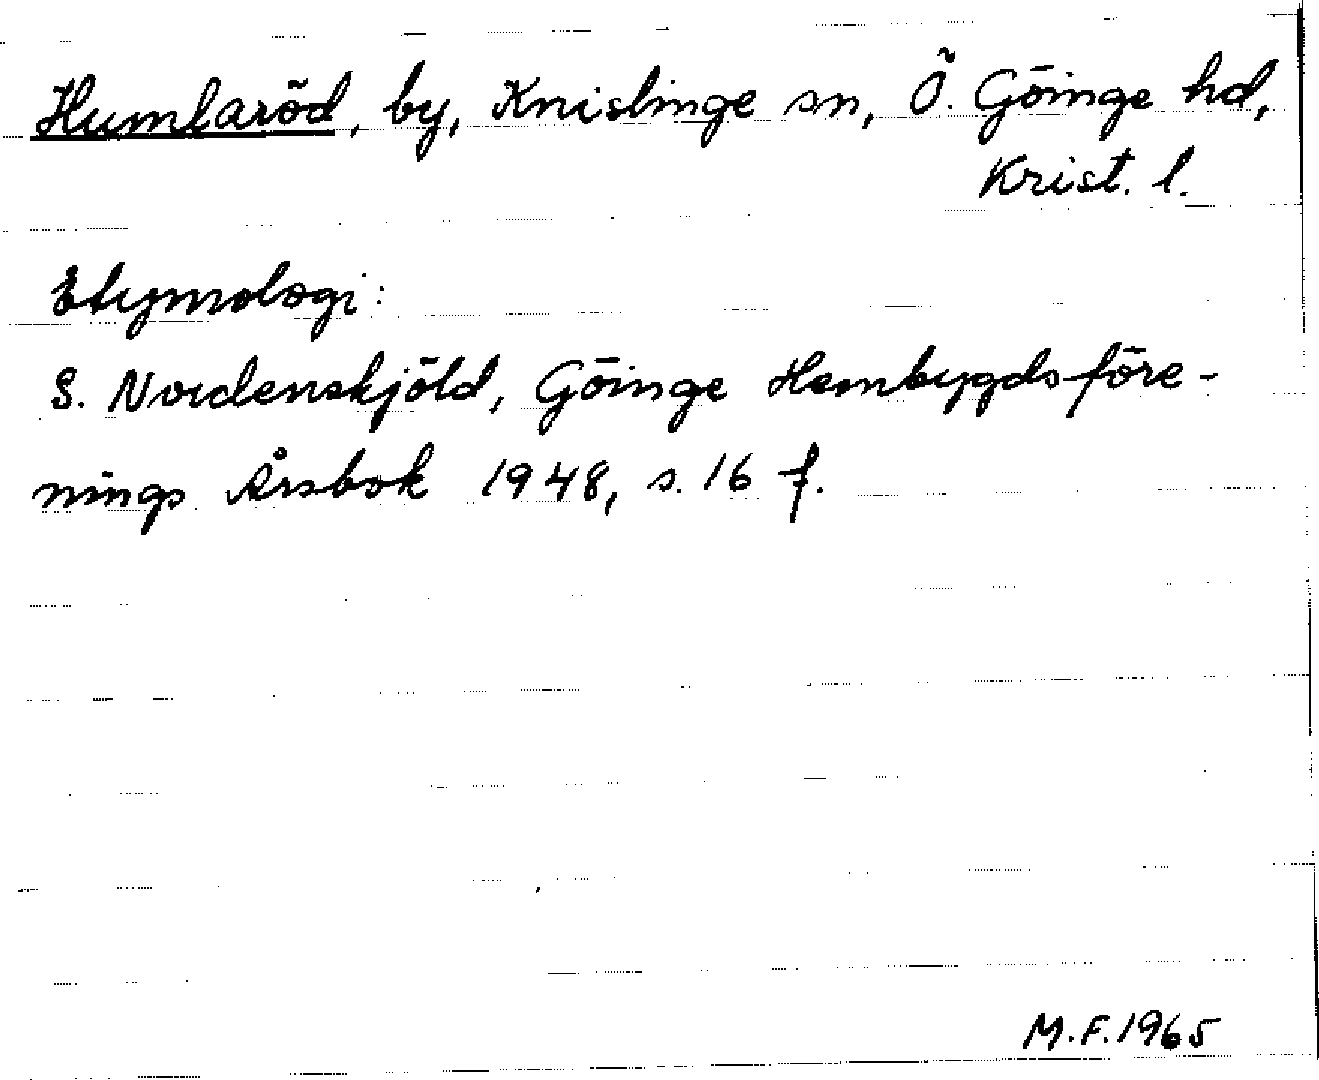 Humlaröd, by, Knislinge sn, Ö. Göinge hd,
Krist. l.
Etymologi:
S. Nordenskjöld, Göinge Hembygdsföre-
nings Årsbok 1948, s. 16 f.
M.F. 1965